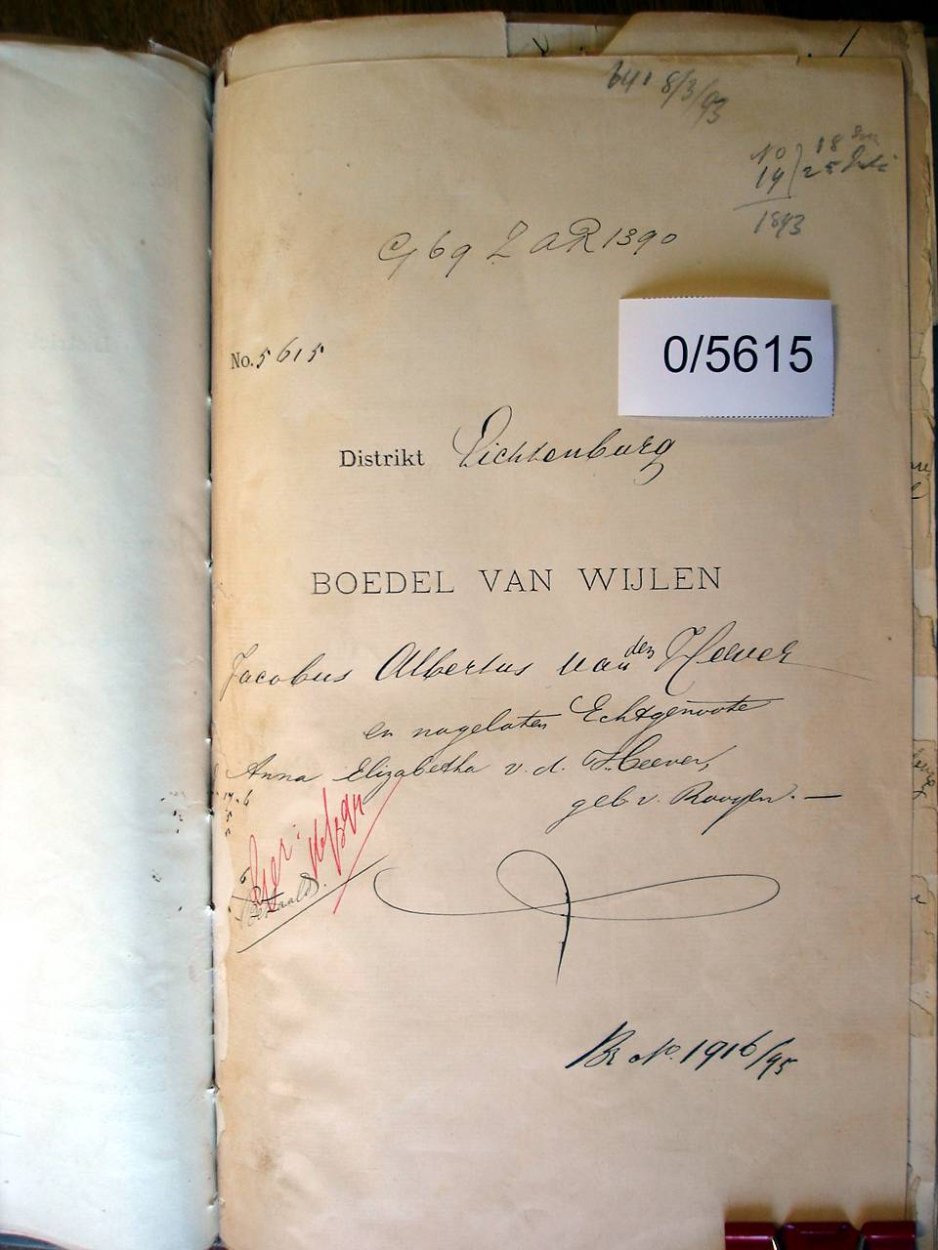 8/3/93
No 18
14 25 Juli
1893
G 69 Z A R 1390
No. 5615
0/5615
Distrikt Lichtenburg
BOEDEL VAN WIJLEN
Jacobus Albertus van den Heever
en nagelaten Echtgenoote
Anna Elizabetha v. d. Heever,
geb v. Rooyen. —
16/3/94
Betaald.
Br No. 1916/95